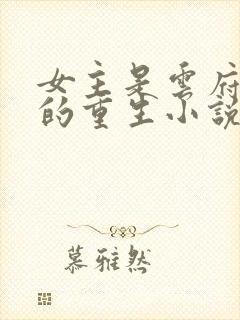 女主是雲府
的重生小說
慕雅然